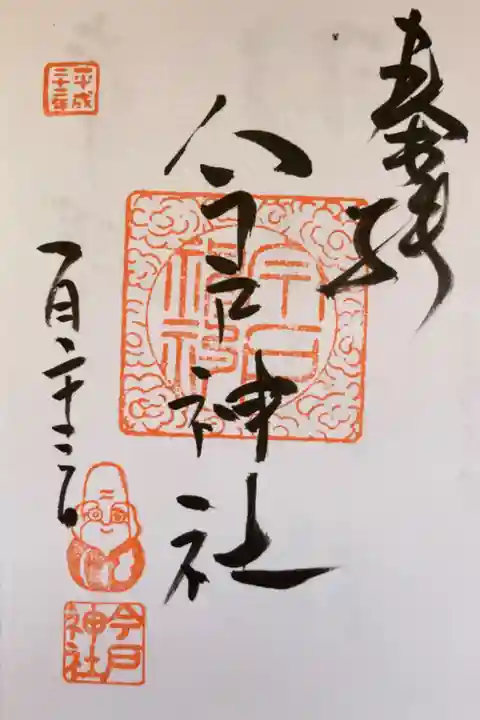 奉拝
今戸神社
今戸神社
平成二十二年
一月二十二日
今戸神社